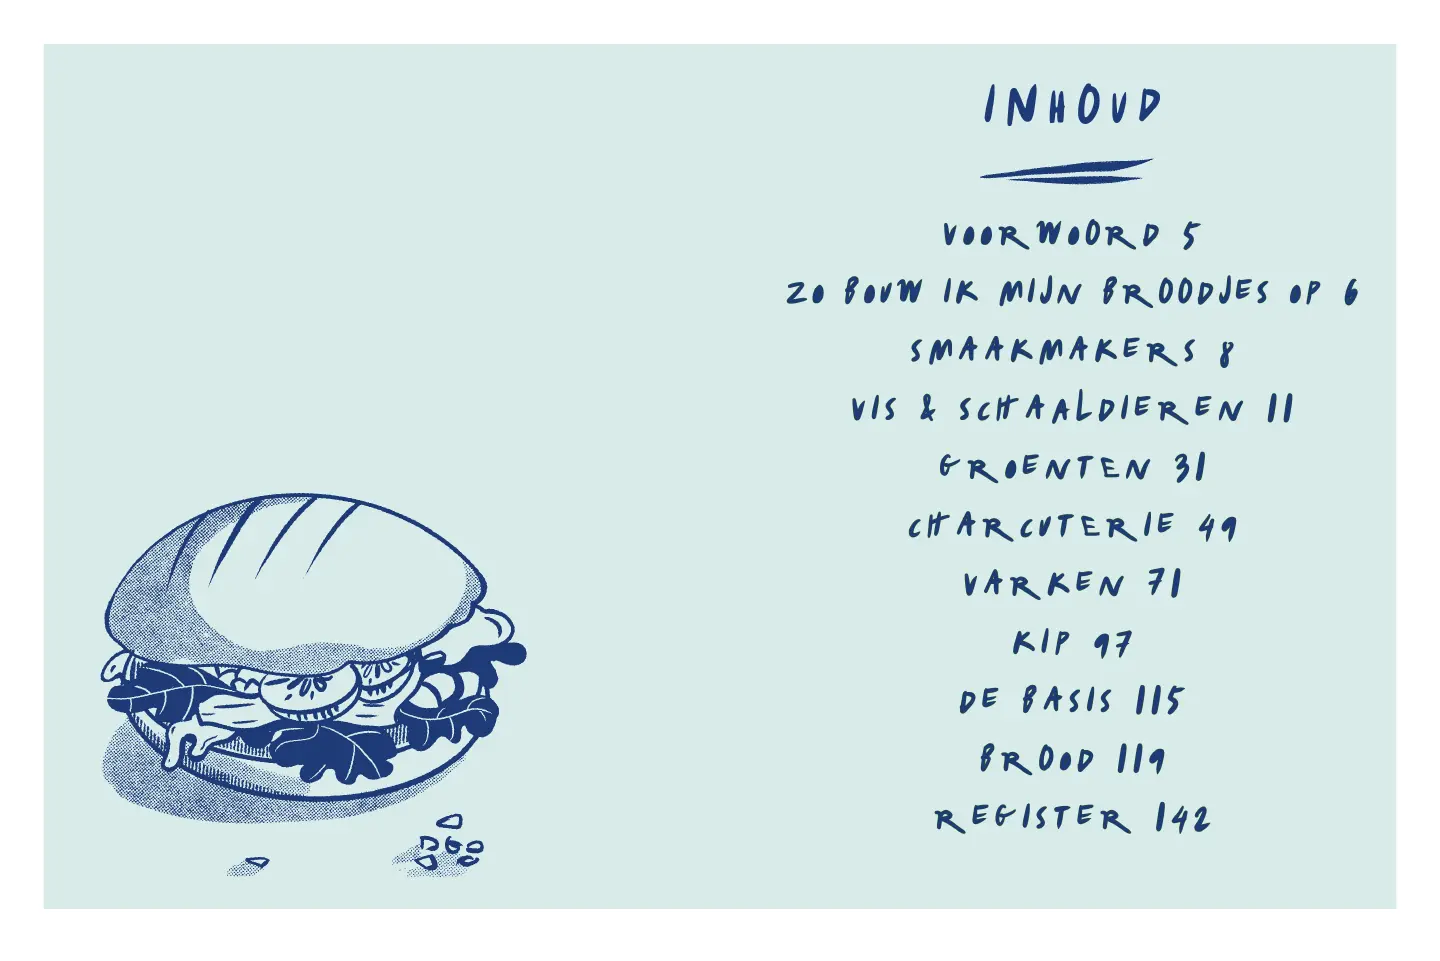 INHOUD
VOORWOORD 5
ZO BOUW IK MIJN BROODJES OP 6
SMAAKMAKERS 8
VIS & SCHAALDIEREN 11
GROENTEN 31
CHARCUTERIE 49
VARKEN 71
KIP 97
DE BASIS 115
BROOD 119
REGISTER 142